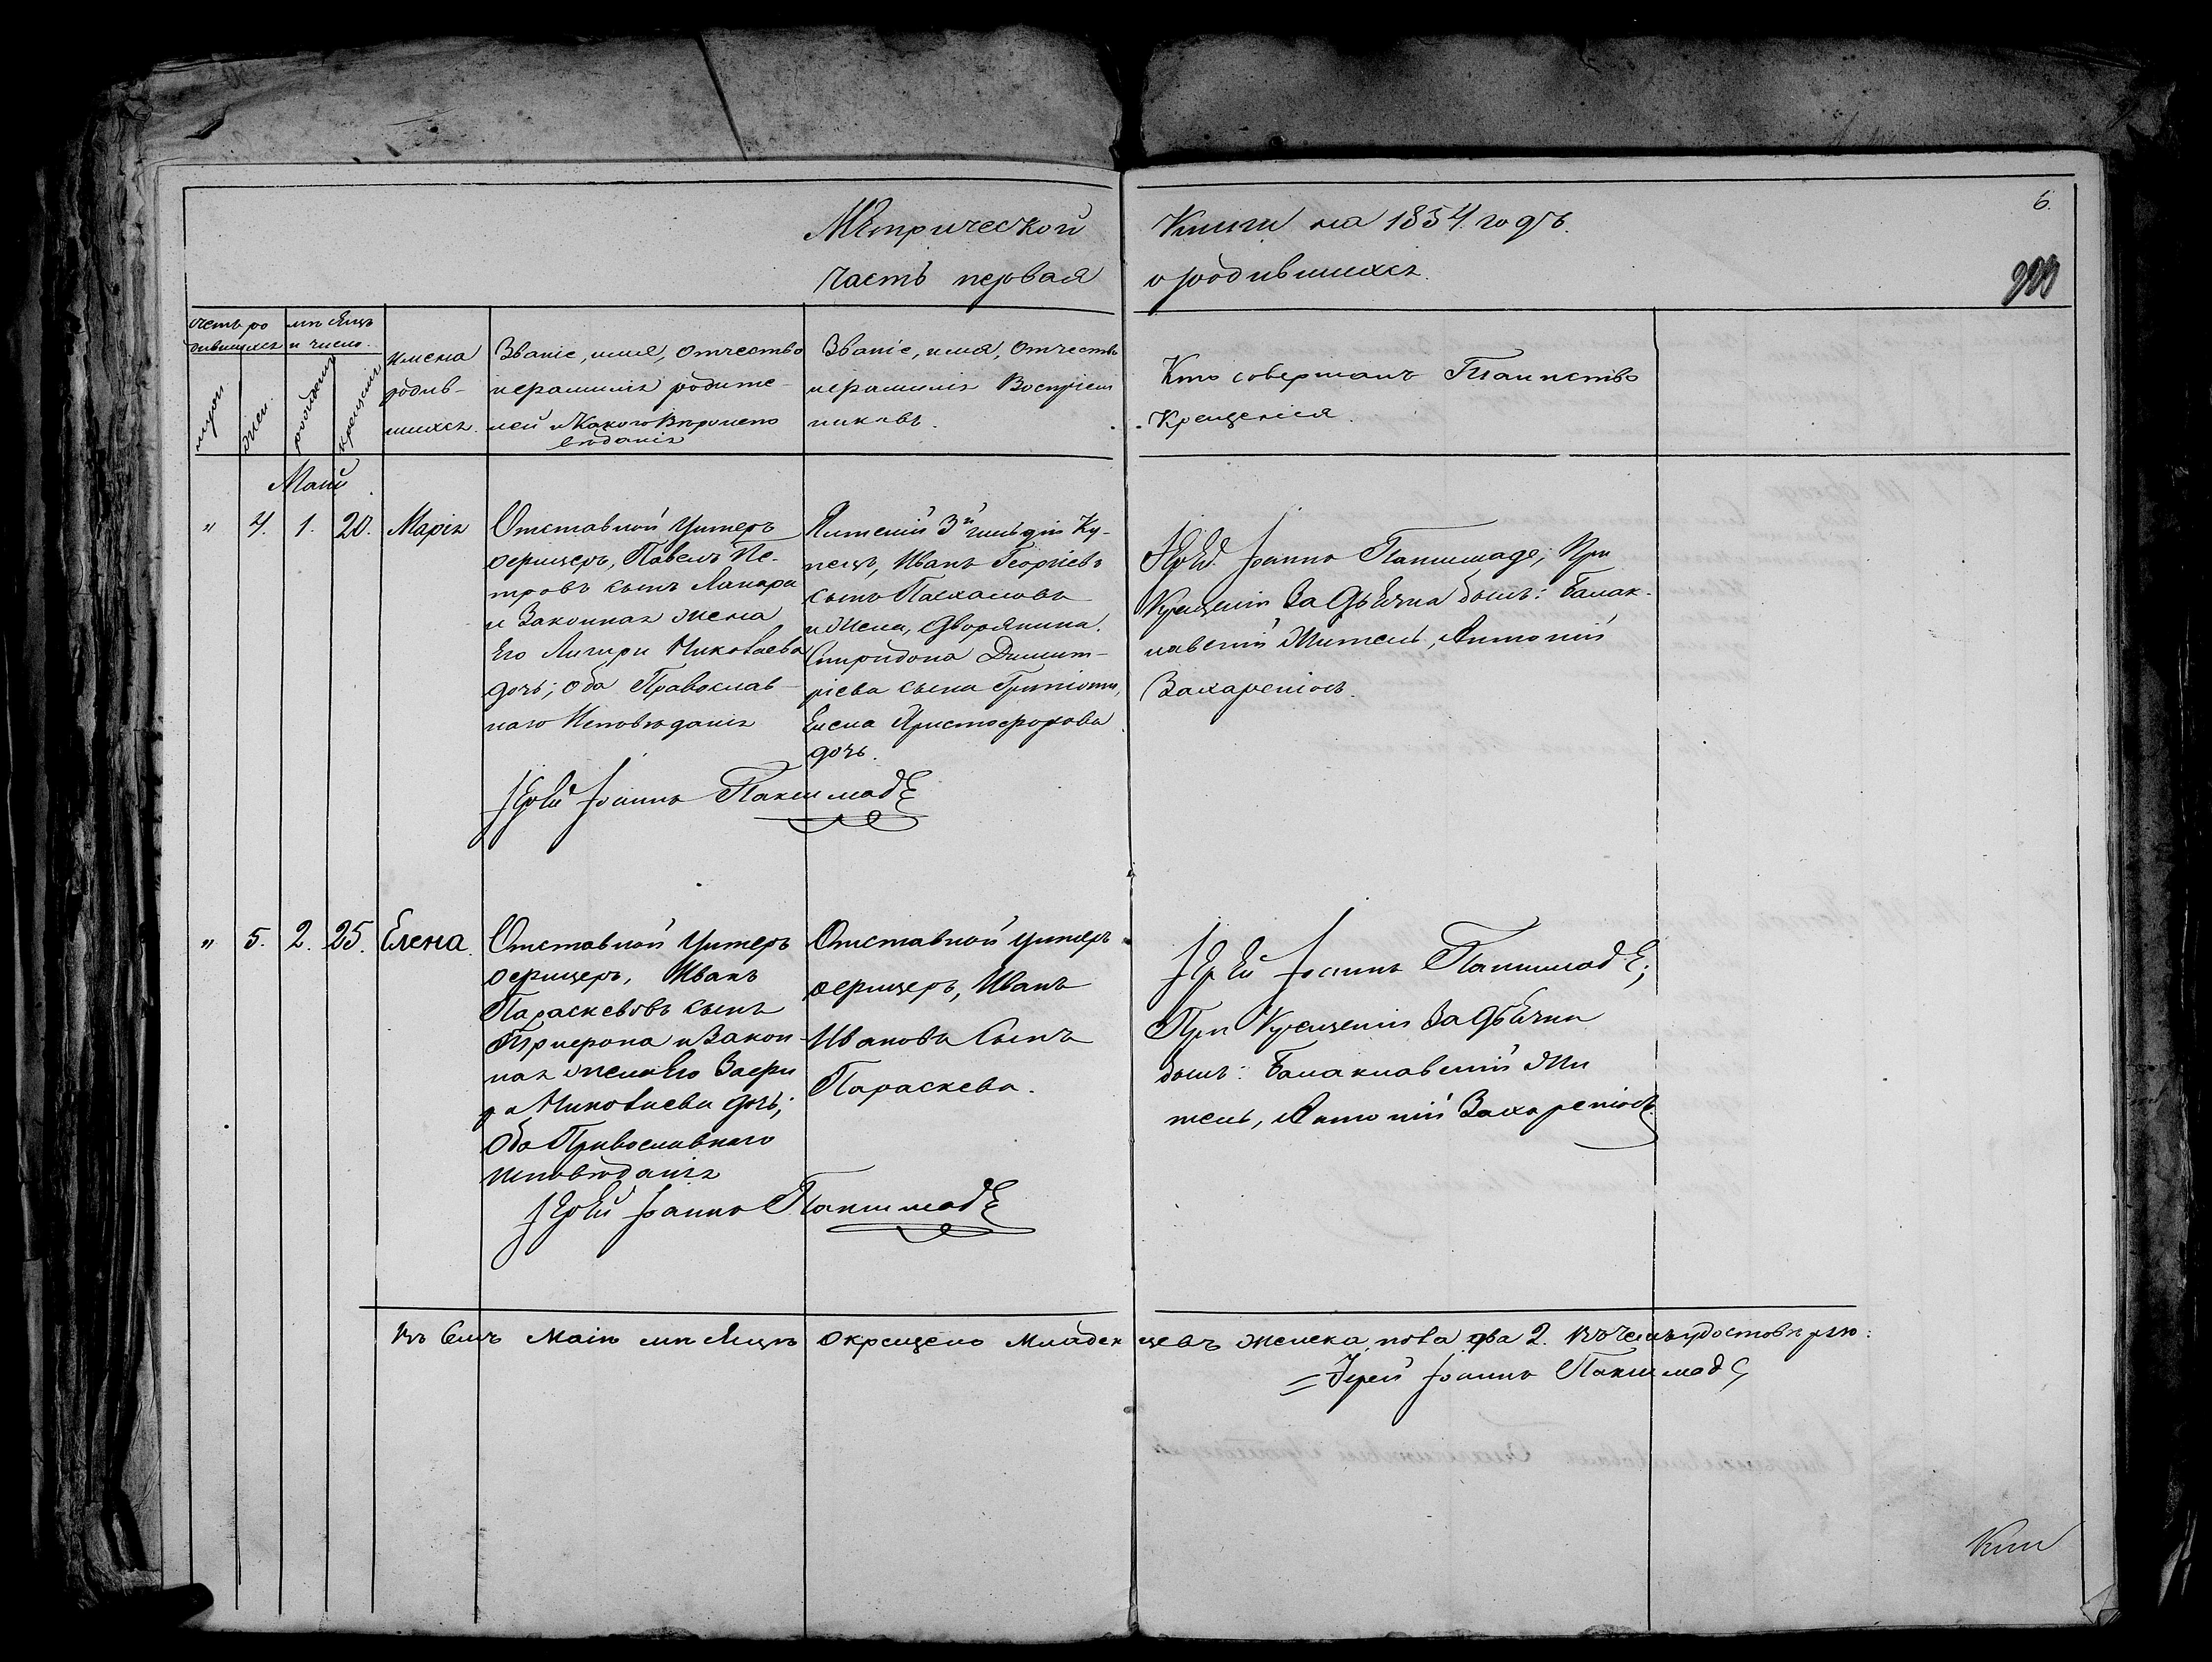 Метрической Книги на 1854. годъ.
6.
часть первая о родившихся.
счетъ ро
дившихся
мѣсяцъ
и число.
муж.
жен.
рожденія
крещенія
имена
родив-
шихся.
Званіе, имя, отчество
и фамилія родите-
лей и какого вѣроиспо
вѣданія
Званіе, имя, отчество
и фамилія воспріем
никовъ.
Кто совершалъ Таинство
Крещенія.
Маій
" 4. 1. 20. Марія
Отставной унтеръ
офицеръ, Павелъ Пе-
тровъ сынъ
и законная жена
его Николаева
дочь; оба Православ-
наго Исповѣданія
3й гильдіи Ку-
пецъ, Иванъ Георгіевъ
сынъ Пасхаловъ
и жена, дворянина
Спиридона Димит-
ріева сына
Елена Христофорова
дочь.
Іерей Іоаннъ Паксимаде; При
Крещеніи за дьячка былъ: Балак-
лавскій житель, Антоній
Іерей Іоаннъ Паксимаде
" 5. 2. 25. Елена.
Отставной унтеръ
офицеръ, Иванъ
Параскевовъ сынъ
и закон-
ная жена его
Николаева дочь;
оба Православнаго
исповѣданія
Отставной унтеръ
офицеръ, Иванъ
Ивановъ Сынъ
Параскева.
Іерей Іоаннъ Паксимаде;
При Крещеніи за дьячка
былъ: Балаклавскій жи
тель, Антоній
Іерей Іоаннъ Паксимаде
Въ семъ Маіи мѣсяцѣ окрещено младенцевъ женска пола два 2. въ чемъ удостовѣряю:
Іерей Іоаннъ Паксимаде